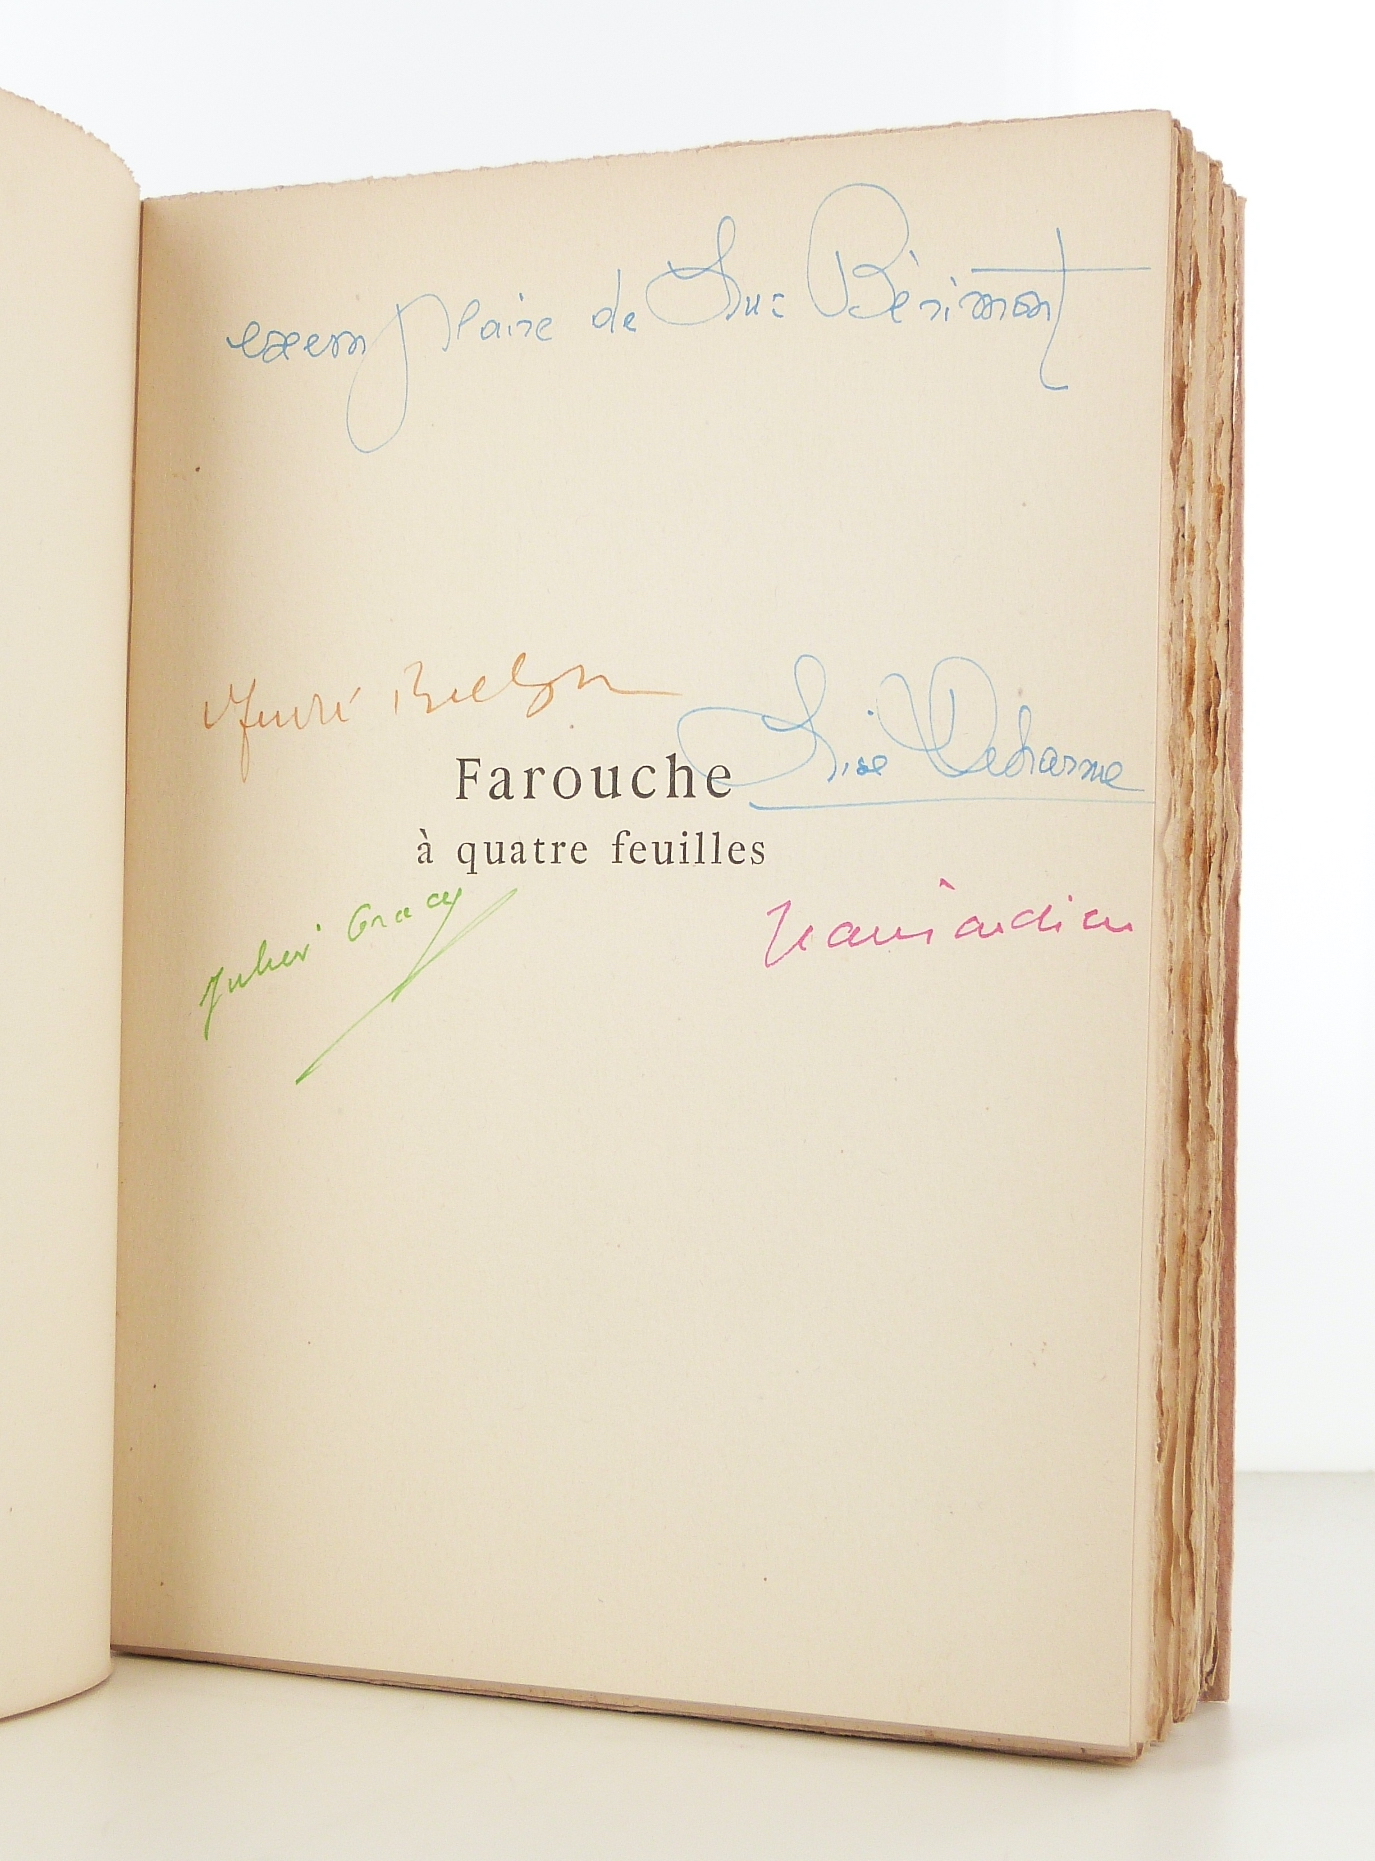 exemplaire de Luc Bérimont
André Breton
Lise Deharme
Farouche
à quatre feuilles
Julien Gracq
Jean Tardieu